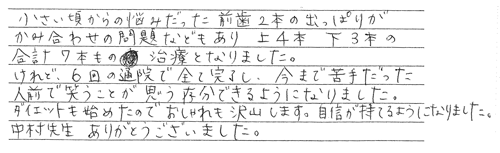 小さい頃からの悩みだった 前歯2本の出っぱりが
かみ合わせの問題などもあり 上4本 下3本の
合計7本もの 治療となりました。
けれど、6回の通院で全て完了し、今まで苦手だった
人前で笑うことが思う存分できるようになりました。
ダイエットも始めたのでおしゃれも沢山します。自信が持てるようになりました。
中村先生 ありがとうございました。